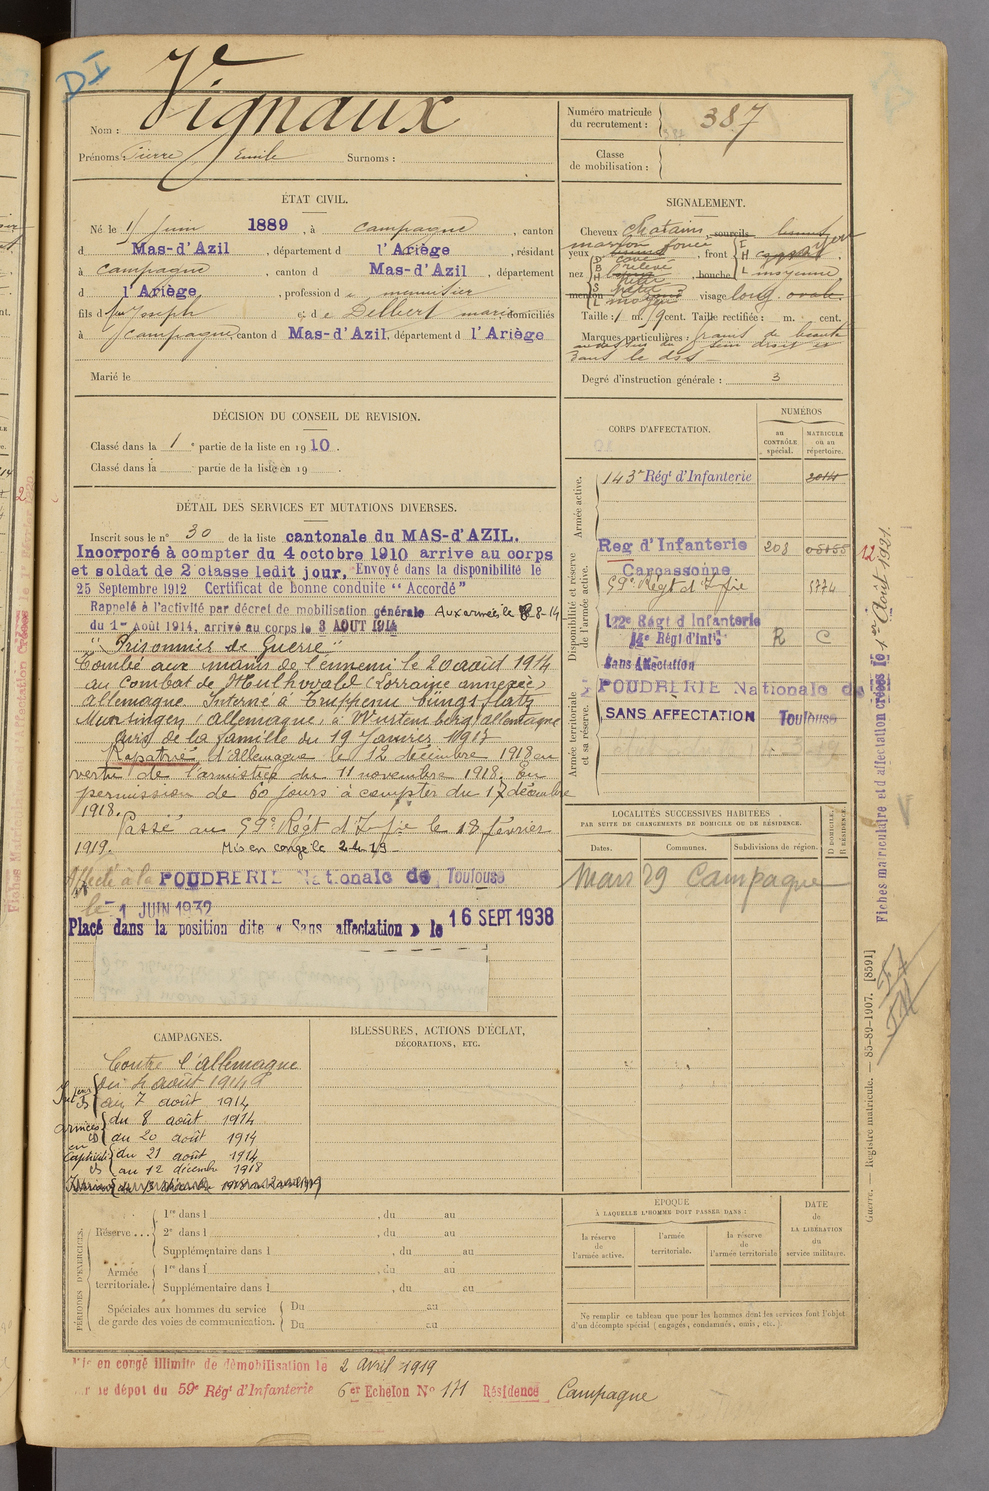 DI
Nom : Vignaux
Prénoms : Pierre Emile Surnoms :
Numéro matricule du recrutement : 387
Classe de mobilisation :
ÉTAT CIVIL.
Né le 1 Juin 1889, à Campagne, canton
d Mas-d'Azil, département d l'Ariège, résidant
à Campagne, canton d Mas-d'Azil, département
d l'Ariège, profession de menuisier
fils de Joseph et de Delbert domiciliés
à Campagne, canton d Mas-d'Azil, département d l'Ariège
Marié le
SIGNALEMENT.
Cheveux Chatains, sourcils
marron foncé
yeux, front
nez, bouche moyenne
menton visage long. ovale
Taille : 1 m. cent. Taille rectifiée : m. cent.
Marques particulières : grains de beauté
sein droit et
dans le dos
Degré d'instruction générale : 3
DÉCISION DU CONSEIL DE REVISION.
Classé dans la 1e partie de la liste en 1910.
Classé dans la partie de la liste en 19 .
DÉTAIL DES SERVICES ET MUTATIONS DIVERSES.
Inscrit sous le n° 30 de la liste cantonale du MAS-d'AZIL.
Incorporé à compter du 4 octobre 1910 arrive au corps
et soldat de 2 classe ledit jour, Envoyé dans la disponibilité le
25 Septembre 1912 Certificat de bonne conduite "Accordé"
Rappelé à l'activité par décret de mobilisation générale Aux armées le 8-8-14
du 1er Août 1914, arrivé au corps le 3 AOUT 1914
"Prisonnier de Guerre"
Tombé aux mains de l'ennemi le 20 août 1914
au combat de Mulhwald (Lorraine annexée)
allemagne. Interné à Truppenu bungsplatz
Munsingen (allemagne) à Wurtemberg allemagne
avis de la famille du 19 Janvier 1917
Rapatrié d'allemagne le 12 décembre 1918 en
vertu de l'armistice du 11 novembre 1918. En
permission de 60 jours à compter du 17 décembre
1918.
Passé au 59e Régt d'Infie le 18 février
1919. Mis en congé le 2-4-19
Affecté à la POUDRERIE Nationale de Toulouse
le 1 JUIN 1932
Placé dans la position dite « Sans affectation » le 16 SEPT 1938
CORPS D'AFFECTATION.
NUMÉROS
au CONTRÔLE spécial.
MATRICULE ou au répertoire.
Armée active.
143e Régt d'Infanterie 2014
Disponibilité et réserve de l'armée active.
Reg d'Infanterie 208 05155
Carcassonne
59e Régt d'Infie 5774
122e Régt d'Infanterie
14e Régt d'Infie R C
Sans Affectation
Armée territoriale et sa réserve.
POUDRERIE Nationale de
SANS AFFECTATION Toulouse
LOCALITÉS SUCCESSIVES HABITÉES
PAR SUITE DE CHANGEMENTS DE DOMICILE OU DE RÉSIDENCE.
Dates. Communes. Subdivisions de région. D DOMICILE. R RÉSIDENCE.
Mars 29 Campagne
CAMPAGNES.
Contre l'allemagne
Intérieur du 4 août 1914
au 7 août 1914
Armées du 8 août 1914
au 20 août 1914
en Captivité du 21 août 1914
au 12 décembre 1918
BLESSURES, ACTIONS D'ÉCLAT,
DÉCORATIONS, ETC.
PÉRIODES D'EXERCICES.
Réserve....
1re dans l , du au
2e dans l , du au
Supplémentaire dans l , du au
Armée territoriale.
1re dans l , du au
Supplémentaire dans l , du au
Spéciales aux hommes du service
de garde des voies de communication.
Du au
Du au
ÉPOQUE
À LAQUELLE L'HOMME DOIT PASSER DANS :
la réserve de l'armée active.
l'armée territoriale.
la réserve de l'armée territoriale
DATE de LA LIBÉRATION du service militaire.
Ne remplir ce tableau que pour les hommes dont les services font l'objet
d'un décompte spécial (engagés, condamnés, omis, etc.).
Mis en congé illimité de démobilisation le 2 avril 1919
par le dépot du 59e Régt d'Infanterie 6er Echelon N° 171 Résidence Campagne
12
Fiches matriculaire et d'affectation créées le 1er Août 1921.
Guerre. — Registre matricule. — 85-89-1907. [8591]